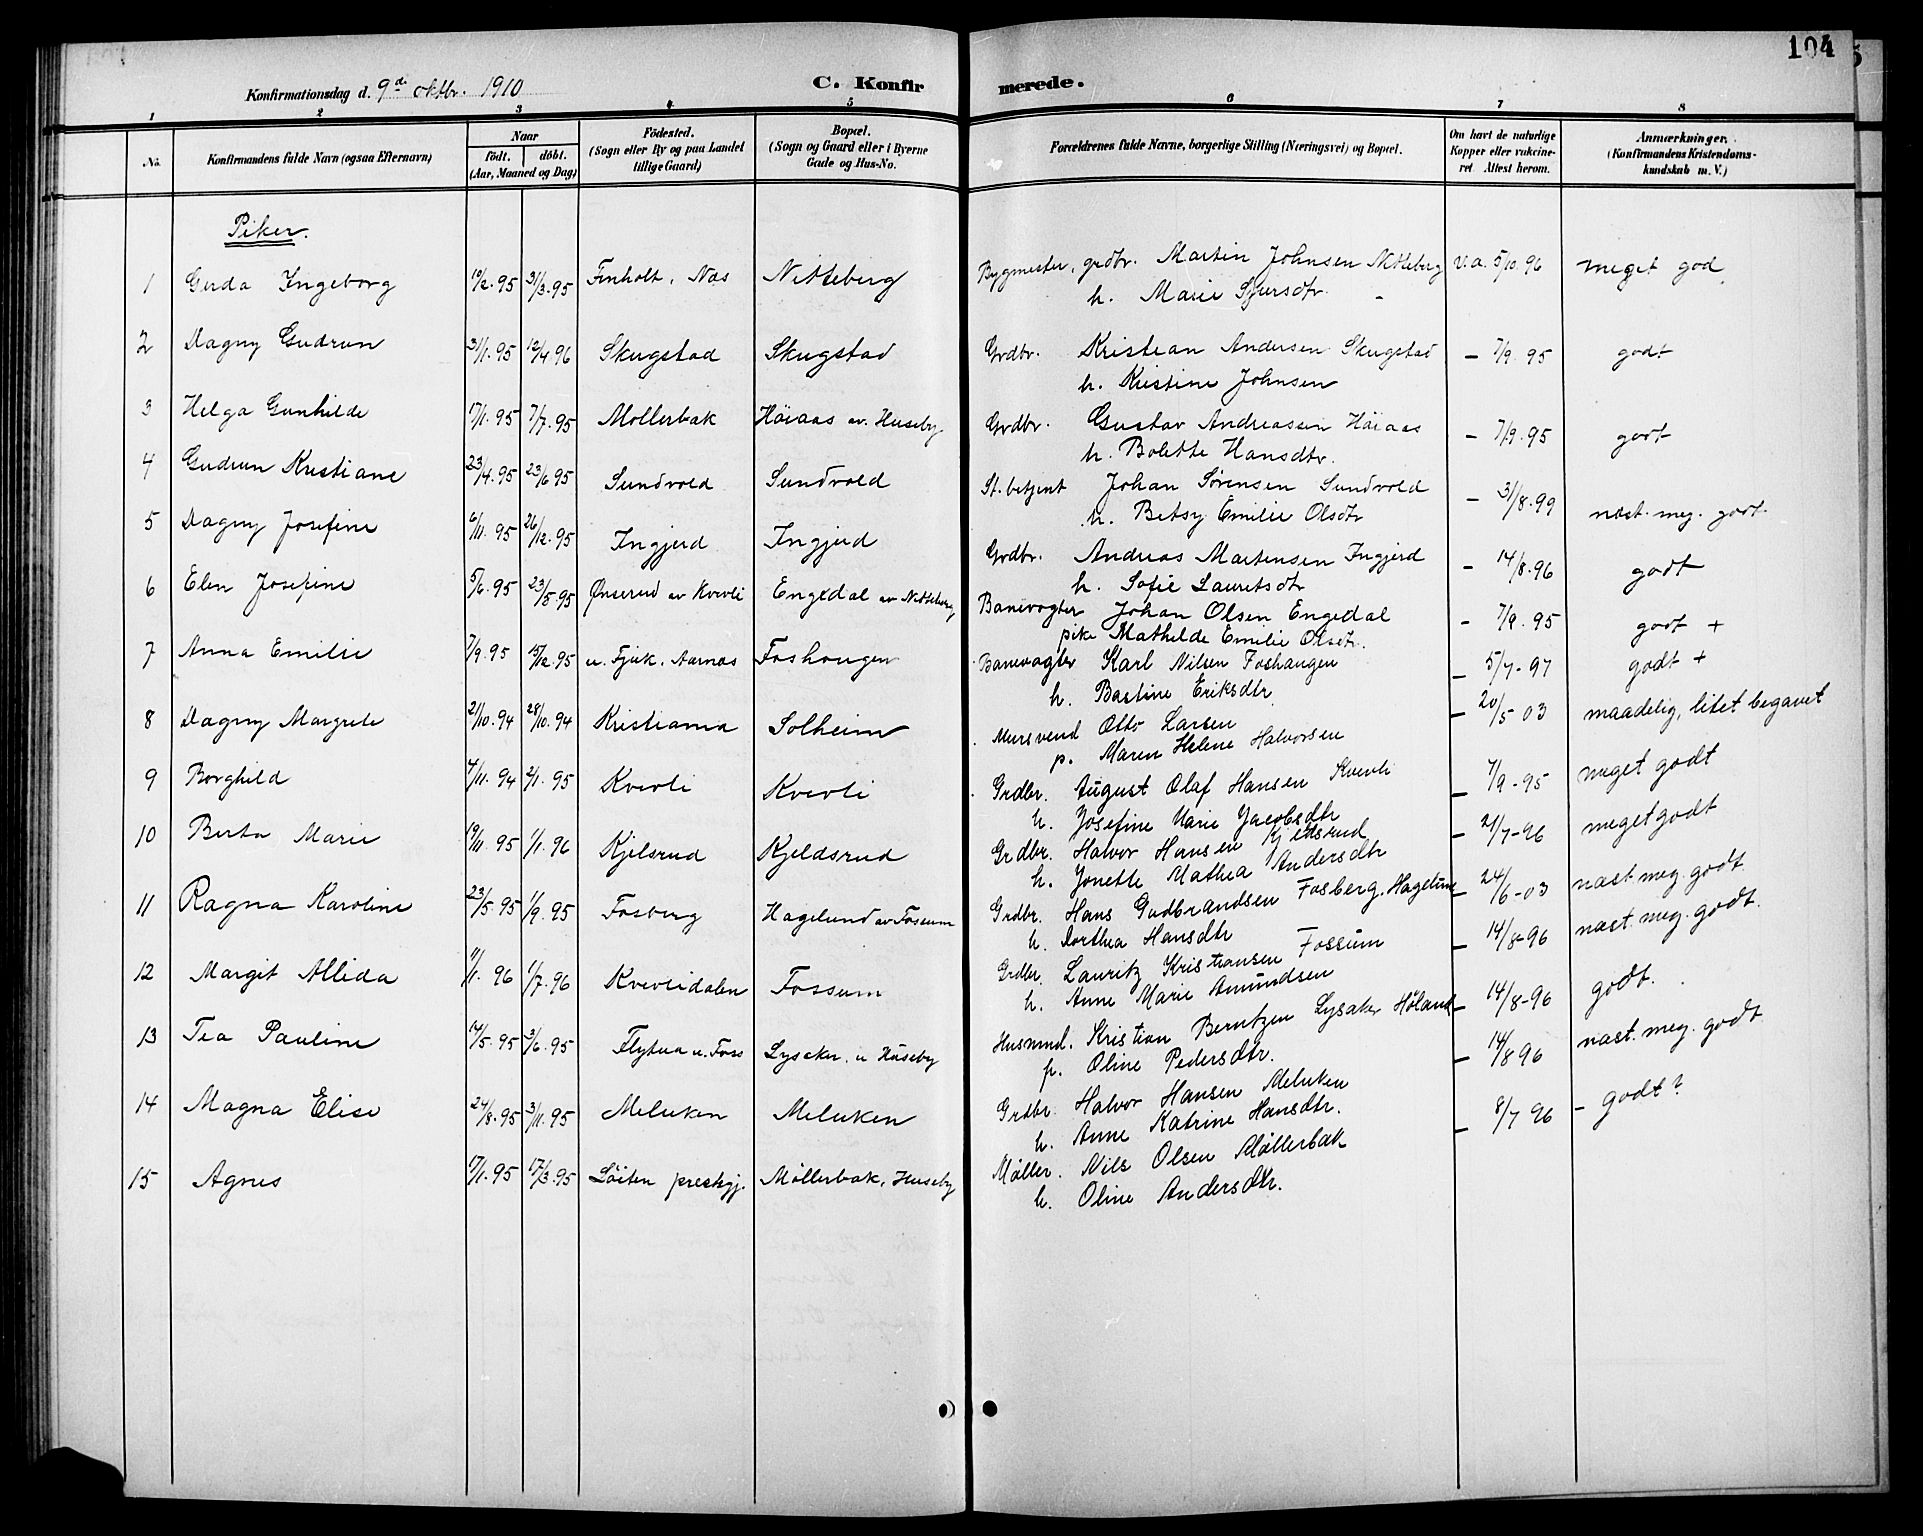 104
Konfirmationsdag d. 9de oktbr. 1910
C. Konfirmerede.
1 2 3 4 5 6 7 8
No. Konfirmandens fulde Navn (ogsaa Efternavn) Naar födt. döbt. (Aar, Maaned og Dag) Födested. (Sogn eller By og paa Landet tillige Gaard) Bopæl. (Sogn og Gaard eller i Byerne Gade og Hus-No. Forældrenes fulde Navne, borgerlige Stilling (Næringsvei) og Bopæl. Om havt de naturlige Kopper eller vakcineret Attest herom. Anmærkninger. (Konfirmandens Kristendomskundskab m. V.)
Piker.
1 Gerda Ingeborg 10/2.95 31/3.95 Finholt, Nes Nitteberg Bygmester, grdbr. Martin Johnsen Nitteberg v.a. 5/10.96 meget god
h. Marie Syversdtr. -
2 Dagny Gudrun 31/1.95 12/4 96 Skugstad Skugstad Grdbr. Kristian Andersen Skugstad - 7/9 95 godt
h. Kristine Johnsen
3 Helga Gunhilde 17/1.95 7/7.95 Mollerbak Höiaas av. Huseby Grdbr. Gustav Andreassen Höiaas - 7/9.95 godt
h. Bolette Hansdtr.
4 Gudrun Kristiane 23/4.95 23/6 95 Sundvold Sundvold St. betjent Johan Sørensen Sundvold - 31/8.99 næst. meg. godt
h. Betsy Emilie Olsdtr
5 Dagny Josefine 6/11.95 26/12.95 Ingjerd Ingjerd Grdbr. Andreas Martensen Ingjerd - 14/8.96 godt
h. Sofie Lauretsdtr
6 Elen Josefine 5/6.95 23/5.95 Ønserud av Kverli Engedal av Nitteberg Banevogter Johan Olsen Engedal - 7/9.95 godt +
pike Mathilde Emilie Olsdtr.
7 Anna Emilie 7/9.95 15/12.95 u. Fjuk. Aarnes Foshaugen Banevogter Karl Nilsen Foshaugen - 5/7-97 godt +
h. Bastine Eriksdtr
8 Dagny Margrete 21/10.94 28/10.94 Kristiania Solheim Mursvend Otto Larsen - 20/5 03 maadelig, litet begavet
p. Maren Helene Halvorsen
9 Borghild 4/11.94 2/1.95 Kverli Kverli Grdbr. August Olaf Hansen Kverli - 7/9-95 meget godt
h. Josefine Marie Jacobsdtr
10 Berta Marie 19/11.95 1/1.96 Kjelsrud Kjeldsrud Grdbr. Halvor Hansen Kjeldsrud - 21/7-96 meget godt
h. Jonette Mathea Andersdtr
11 Ragna Karoline 23/5.95 1/9.95 Fosberg Hagelund av Fossum Grdbr. Hans Gudbrandsen Fosberg, Hagelund - 24/6-03 næst meg. godt
h. Dorthea Hansdtr
12 Margit Allida 11/1.96 1/7.96 Kverlidalen Fossum Grdbr. Lauritz Kristiansen Fossum - 14/8-96 næst. meg. godt.
h. Anne Marie Amundsen
13 Tea Pauline 14/5.95 3/6.95 Flytua u. Foss Lysaker. u Huseby Husmd. Kristian Berntzen Lysaker Höland - 14/8-96 godt.
p. Oline Pedersdtr.
14 Magna Elise 24/8.95 3/11.95 Meluken Meluken Grdbr. Halvor Hansen Meluken - 14/8 96 næst. meg. godt
h. Anne Katrine Hansdtr.
15 Agnes 17/1.95 17/3.95 Löiten prestgj. Möllerbak, Huseby Møller. Nils Olsen Møllerbak - 8/7 96 - godt?
h. Oline Andersdtr.